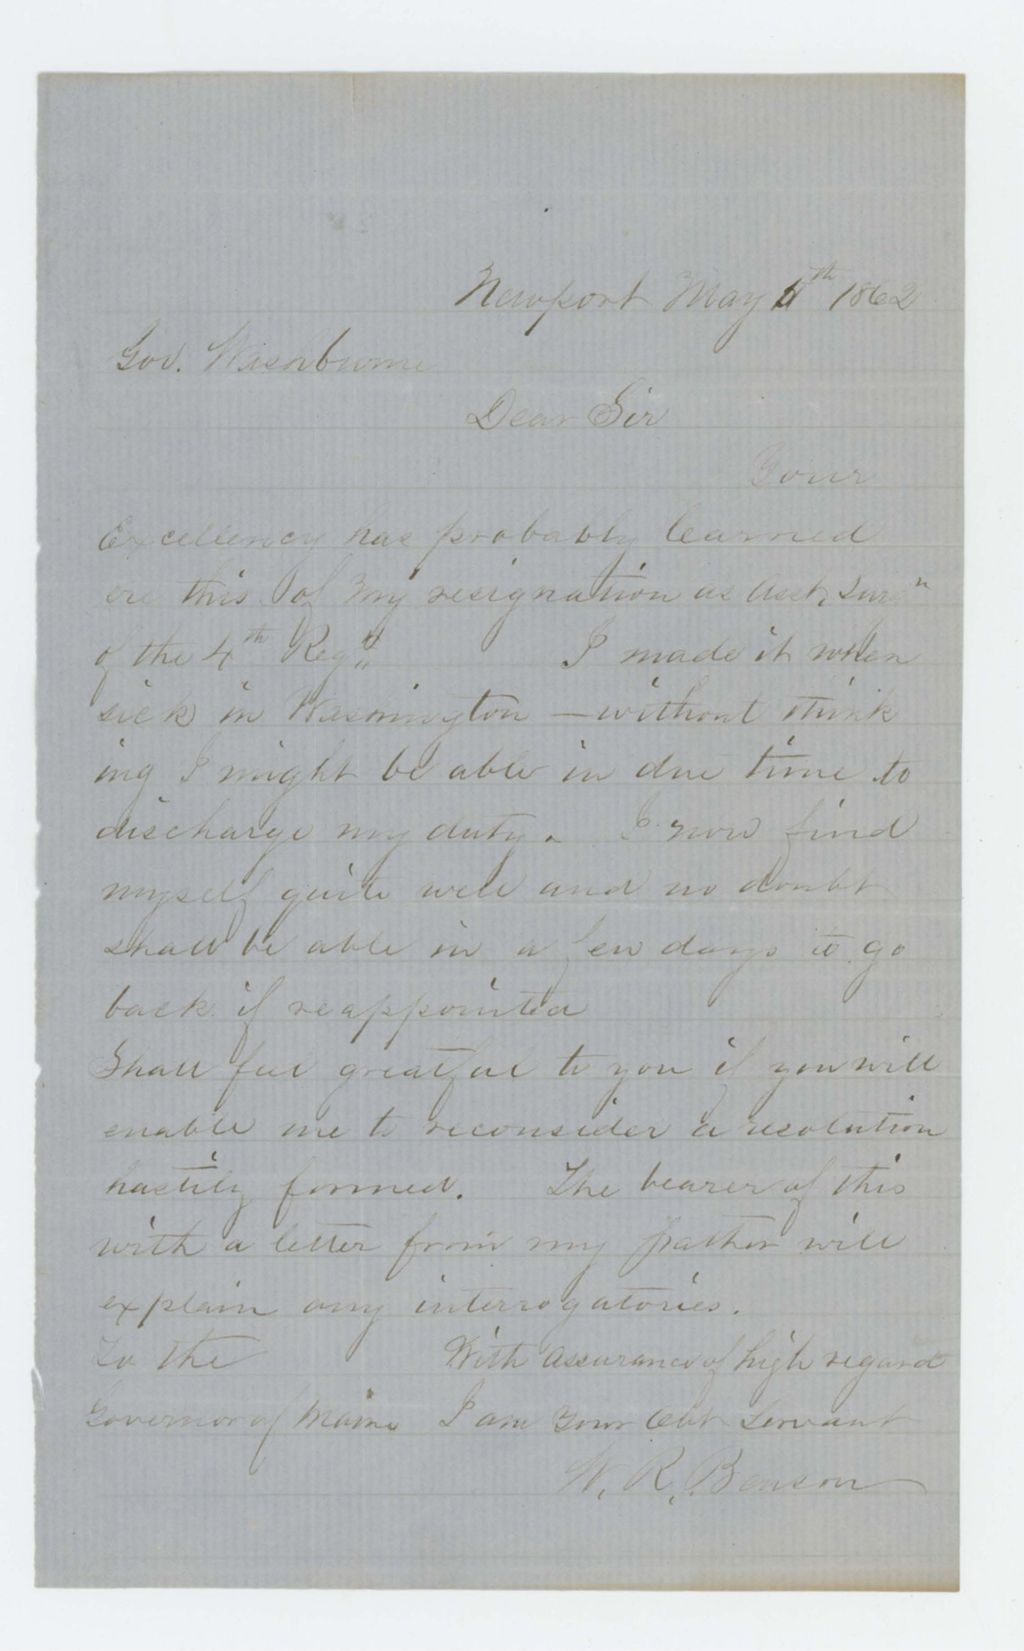 Newport May 4th 1862
Gov. Washburne
Dear Sir
Your
Excellency has probably learned
ere this of my resignation as Asst, Surgn
of the 4th Regt. I made it when
sick in Washington – without think
ing I might be able in due time to
discharge my duty. I now find
myself quite well and no doubt
shall be able in a few days to go
back if reappointed
Shall feel greatful to you if you will
enable me to reconsider a resolution
hastily formed. The bearer of this
with a letter from my father will
explain any interrogatories.
To the With assurance of high regard
Governor of Maine I am your Obt Servant
W. R. Benson